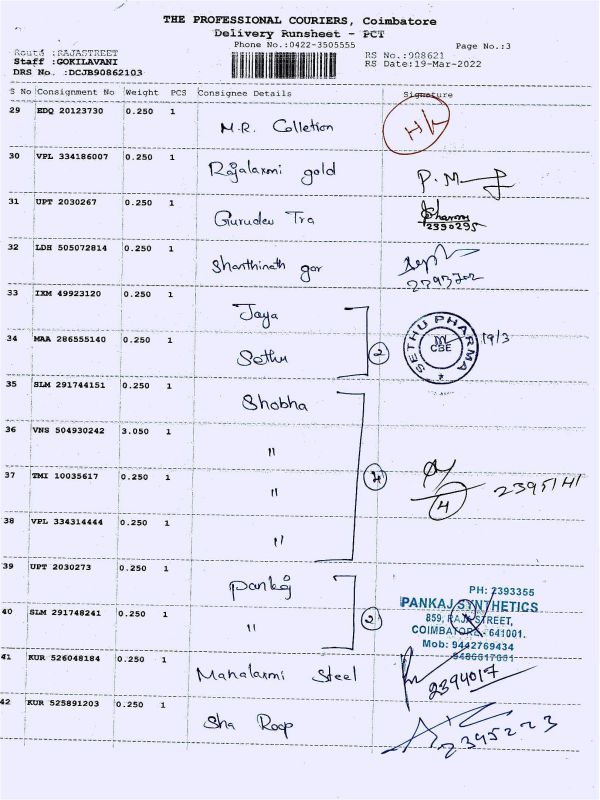 THE PROFESSIONAL COURIERS, Coimbatore
Delivery Runsheet - PCT
Phone No.:0422-3505555 Page No.:3
Route :RAJASTREET RS No.:908621
Staff :GOKILAVANI RS Date:19-Mar-2022
DRS No. :DCJB90862103
S No Consignment No Weight PCS Consignee Details Signature
29 EDQ 20123730 0.250 1 M.R. Colletion H/K
30 VPL 334186007 0.250 1 Rajalaxmi gold P.M
31 UPT 2030267 0.250 1 Gurudev Tra Sharmi
2390295
32 LDH 505072814 0.250 1 Shanthinath gar
33 IXM 49923120 0.250 1 Jaya
SETHU PHARMA CSE 19/3
34 MAA 286555140 0.250 1 Sethu 2
35 SLM 291744151 0.250 1 Shobha
36 VNS 504930242 3.050 1 "
37 TMI 10035617 0.250 1 " 4 4 2395141
38 VPL 334314444 0.250 1 "
39 UPT 2030273 0.250 1 Pankaj
PH: 2393355
PANKAJ SYNTHETICS
40 SLM 291748241 0.250 1 " 2 859, RAJA STREET,
COIMBATORE - 641001.
Mob: 9442769434
41 KUR 526048184 0.250 1 Mahalaxmi Steel
2394017
42 KUR 525891203 0.250 1 Sha Roop
2395223